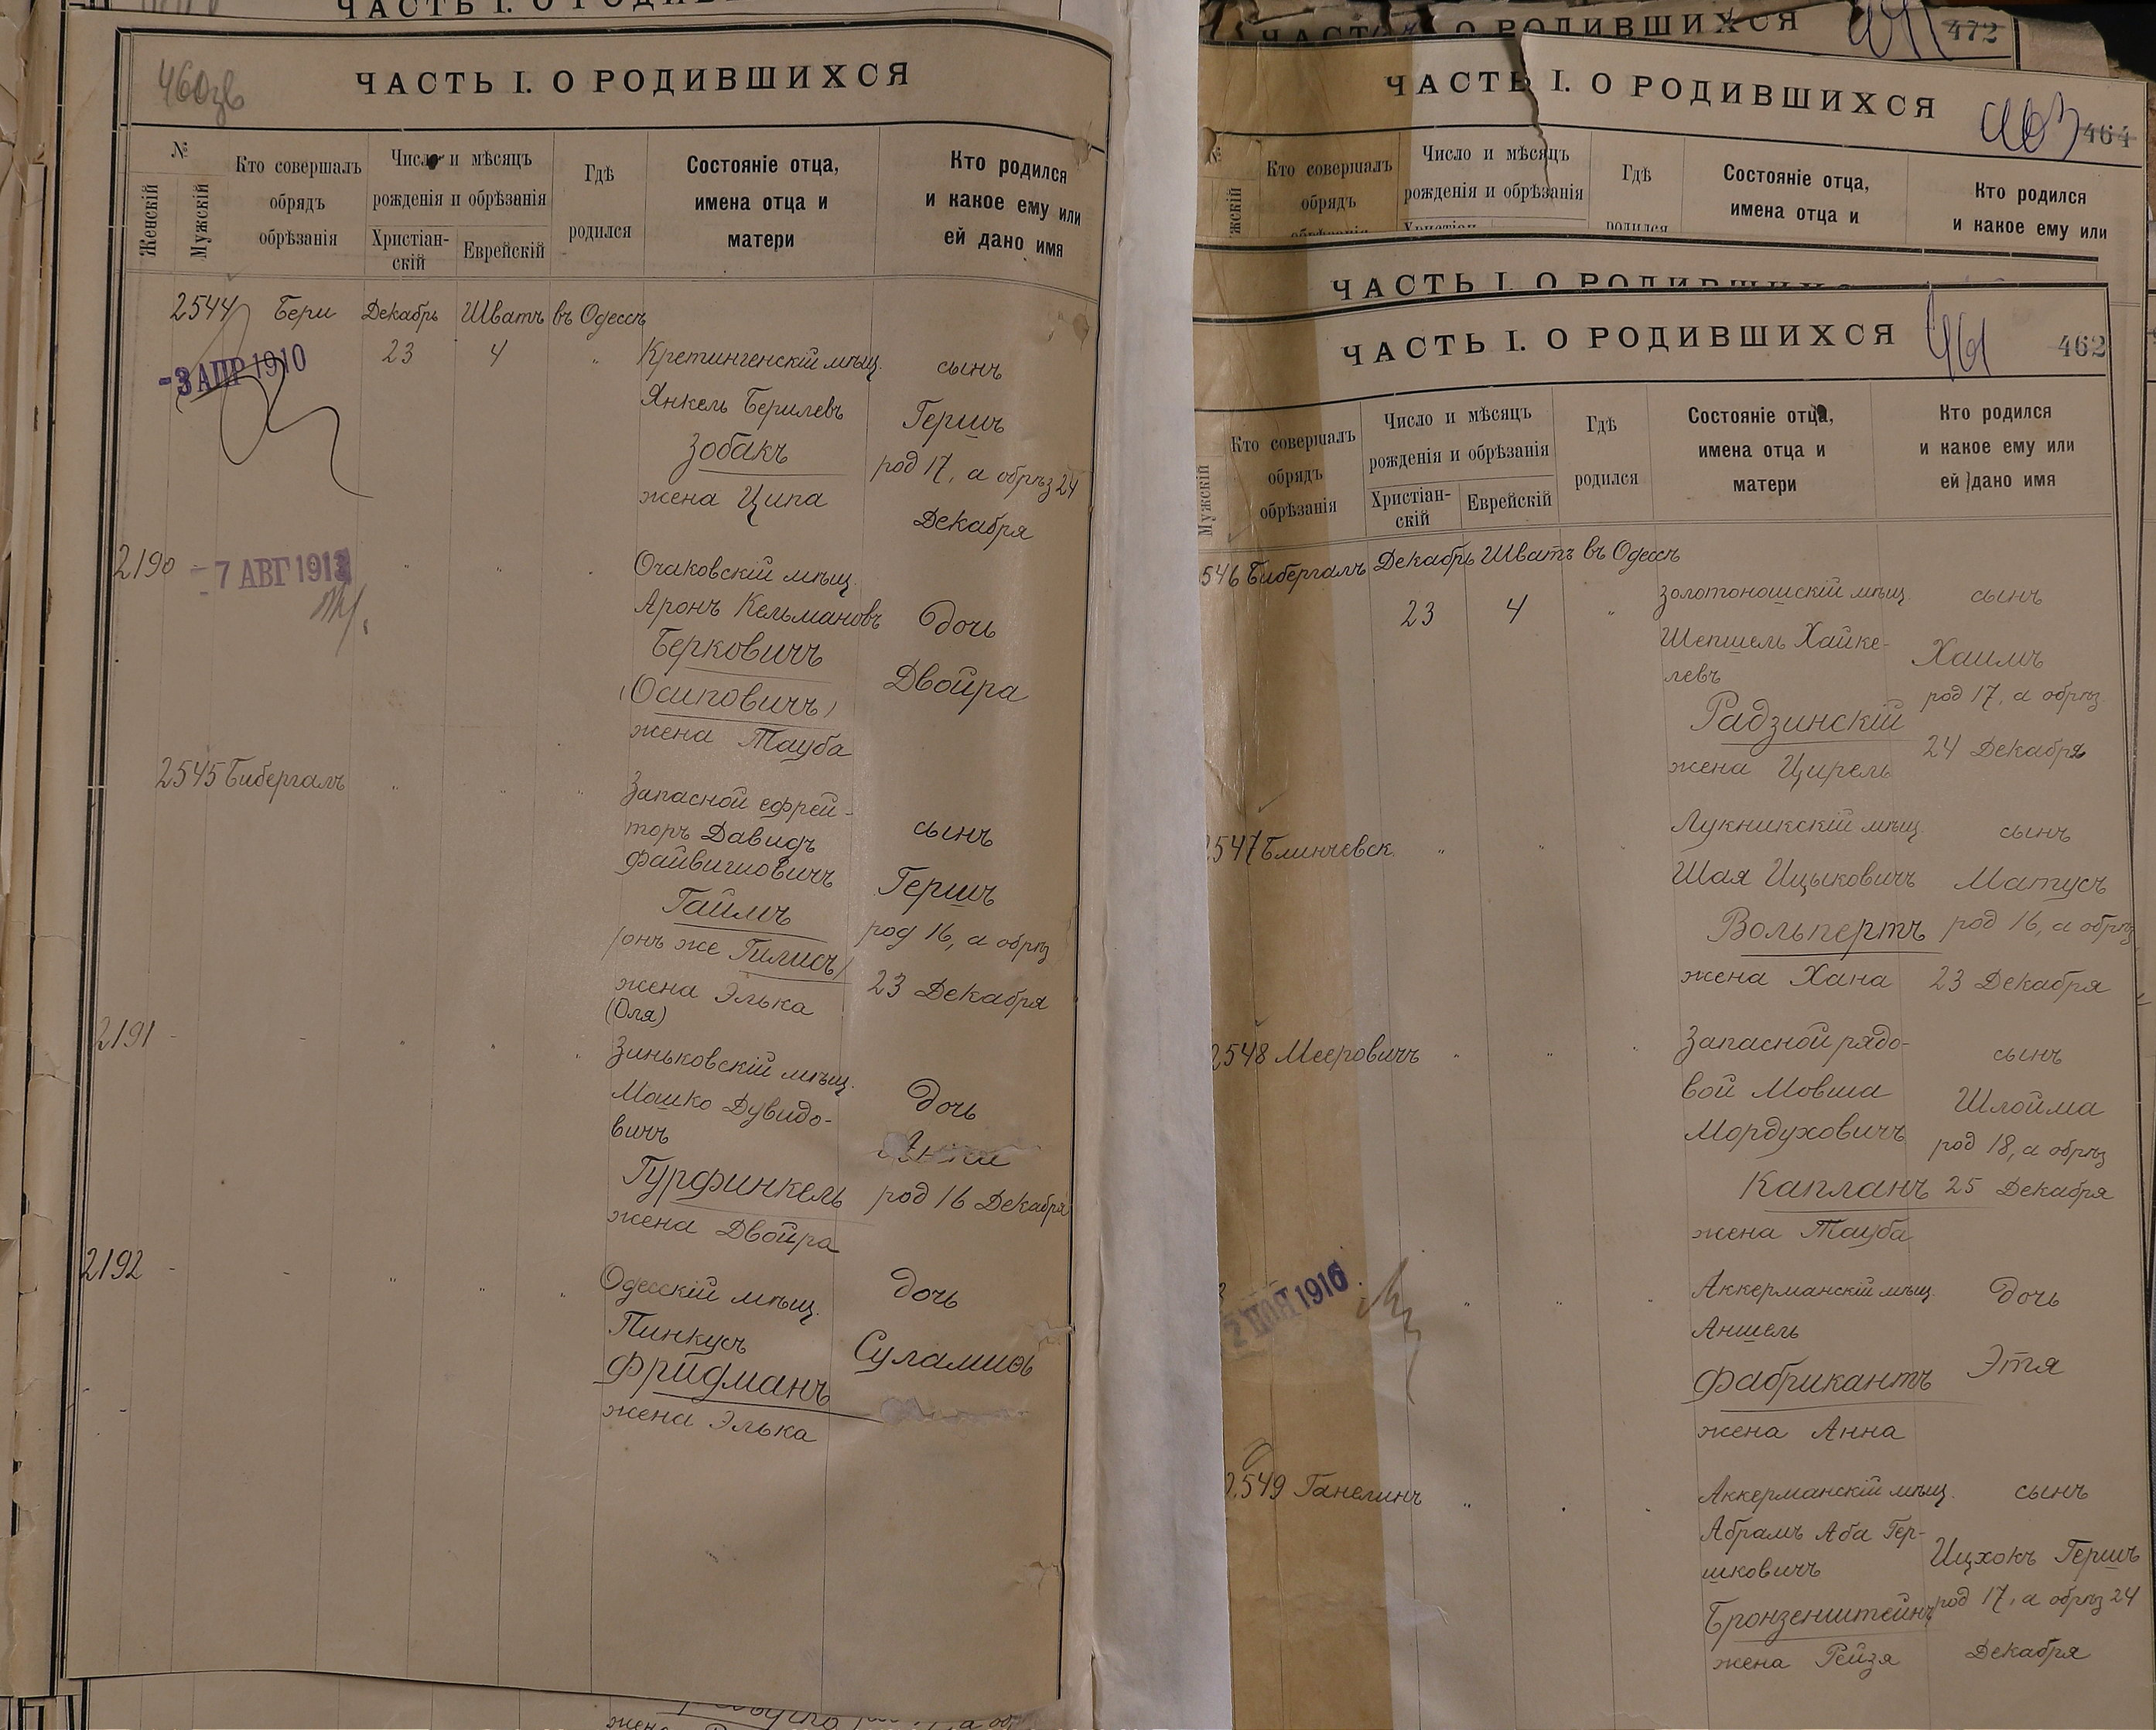 ЧАСТЬ I. О РОДИВШИХСЯ
460зв
№
Женскій
Мужскій
Кто совершалъ
обрядъ
обрѣзанія
Число и мѣсяцъ
рожденія и обрѣзанія
Христіан-
скій
Еврейскій
Гдѣ
родился
Состояніе отца,
имена отца и
матери
Кто родился
и какое ему или
ей дано имя
2544 Бери Декабрь Шватъ въ Одессѣ
-3 АПР 1910
23 4 "
Кретингенскій мѣщ.
Янкель Берилевъ
Зобакъ
жена Ципа
сынъ
Гершъ
род 17, а обрѣз 24
Декабря
2190
-7 АВГ 1913
Очаковскій мѣщ.
Аронъ Кельмановъ
Берковичъ
(Осиповичъ)
жена Тауба
дочь
Двойра
2545 Бибергалъ
Запасной ефрей-
торъ Давидъ
Файвишовичъ
Гаймъ
/онъ же Гилисъ/
жена Элька
(Оля)
сынъ
Гершъ
род 16, а обрѣз
23 Декабря
2191
Зиньковскій мѣщ.
Мошко Дувидо-
вичъ
Гурфинкель
жена Двойра
дочь
род 16 Декабря
2192
Одесскій мѣщ.
Пинкусъ
Фридманъ
жена Элька
дочь
Суламиѳь
ЧАСТЬ I. О РОДИВШИХСЯ
472
ЧАСТЬ I. О РОДИВШИХСЯ
463 464
№
Кто совершалъ
обрядъ
обрѣзанія
Число и мѣсяцъ
рожденія и обрѣзанія
Гдѣ
родился
Состояніе отца,
имена отца и
Кто родился
и какое ему или
ЧАСТЬ I. О РОДИВШИХСЯ
ЧАСТЬ I. О РОДИВШИХСЯ
461 462
Мужскій
Кто совершалъ
обрядъ
обрѣзанія
Число и мѣсяцъ
рожденія и обрѣзанія
Христіан-
скій
Еврейскій
Гдѣ
родился
Состояніе отца,
имена отца и
матери
Кто родился
и какое ему или
ей дано имя
546 Бибергалъ Декабрь Шватъ въ Одессѣ
23 4 "
Золотоношскій мѣщ
Шепшель Хайке-
левъ
Радзинскій
жена Цирель
сынъ
Хаимъ
род 17, а обрѣз.
24 Декабря
2547 Блинчевск.
Лукникскій мѣщ.
Шая Ицыковичъ
Вольпертъ
жена Хана
сынъ
Матусъ
род 16, а обрѣз
23 Декабря
2548 Мееровичъ
Запасной рядо-
вой Мовша
Мордуховичъ
Капланъ
жена Тауба
сынъ
Шлойма
род 18, а обрѣз
25 Декабря
1916
Аккерманскій мѣщ.
Аншель
Фабрикантъ
жена Анна
дочь
Этя
2549 Ганелинъ
Аккерманскій мѣщ.
Абрамъ Аба Гер-
шковичъ
Бронзенштейнъ
жена Рейзя
сынъ
Ицхокъ Гершъ
род 17, а обрѣз 24
Декабря